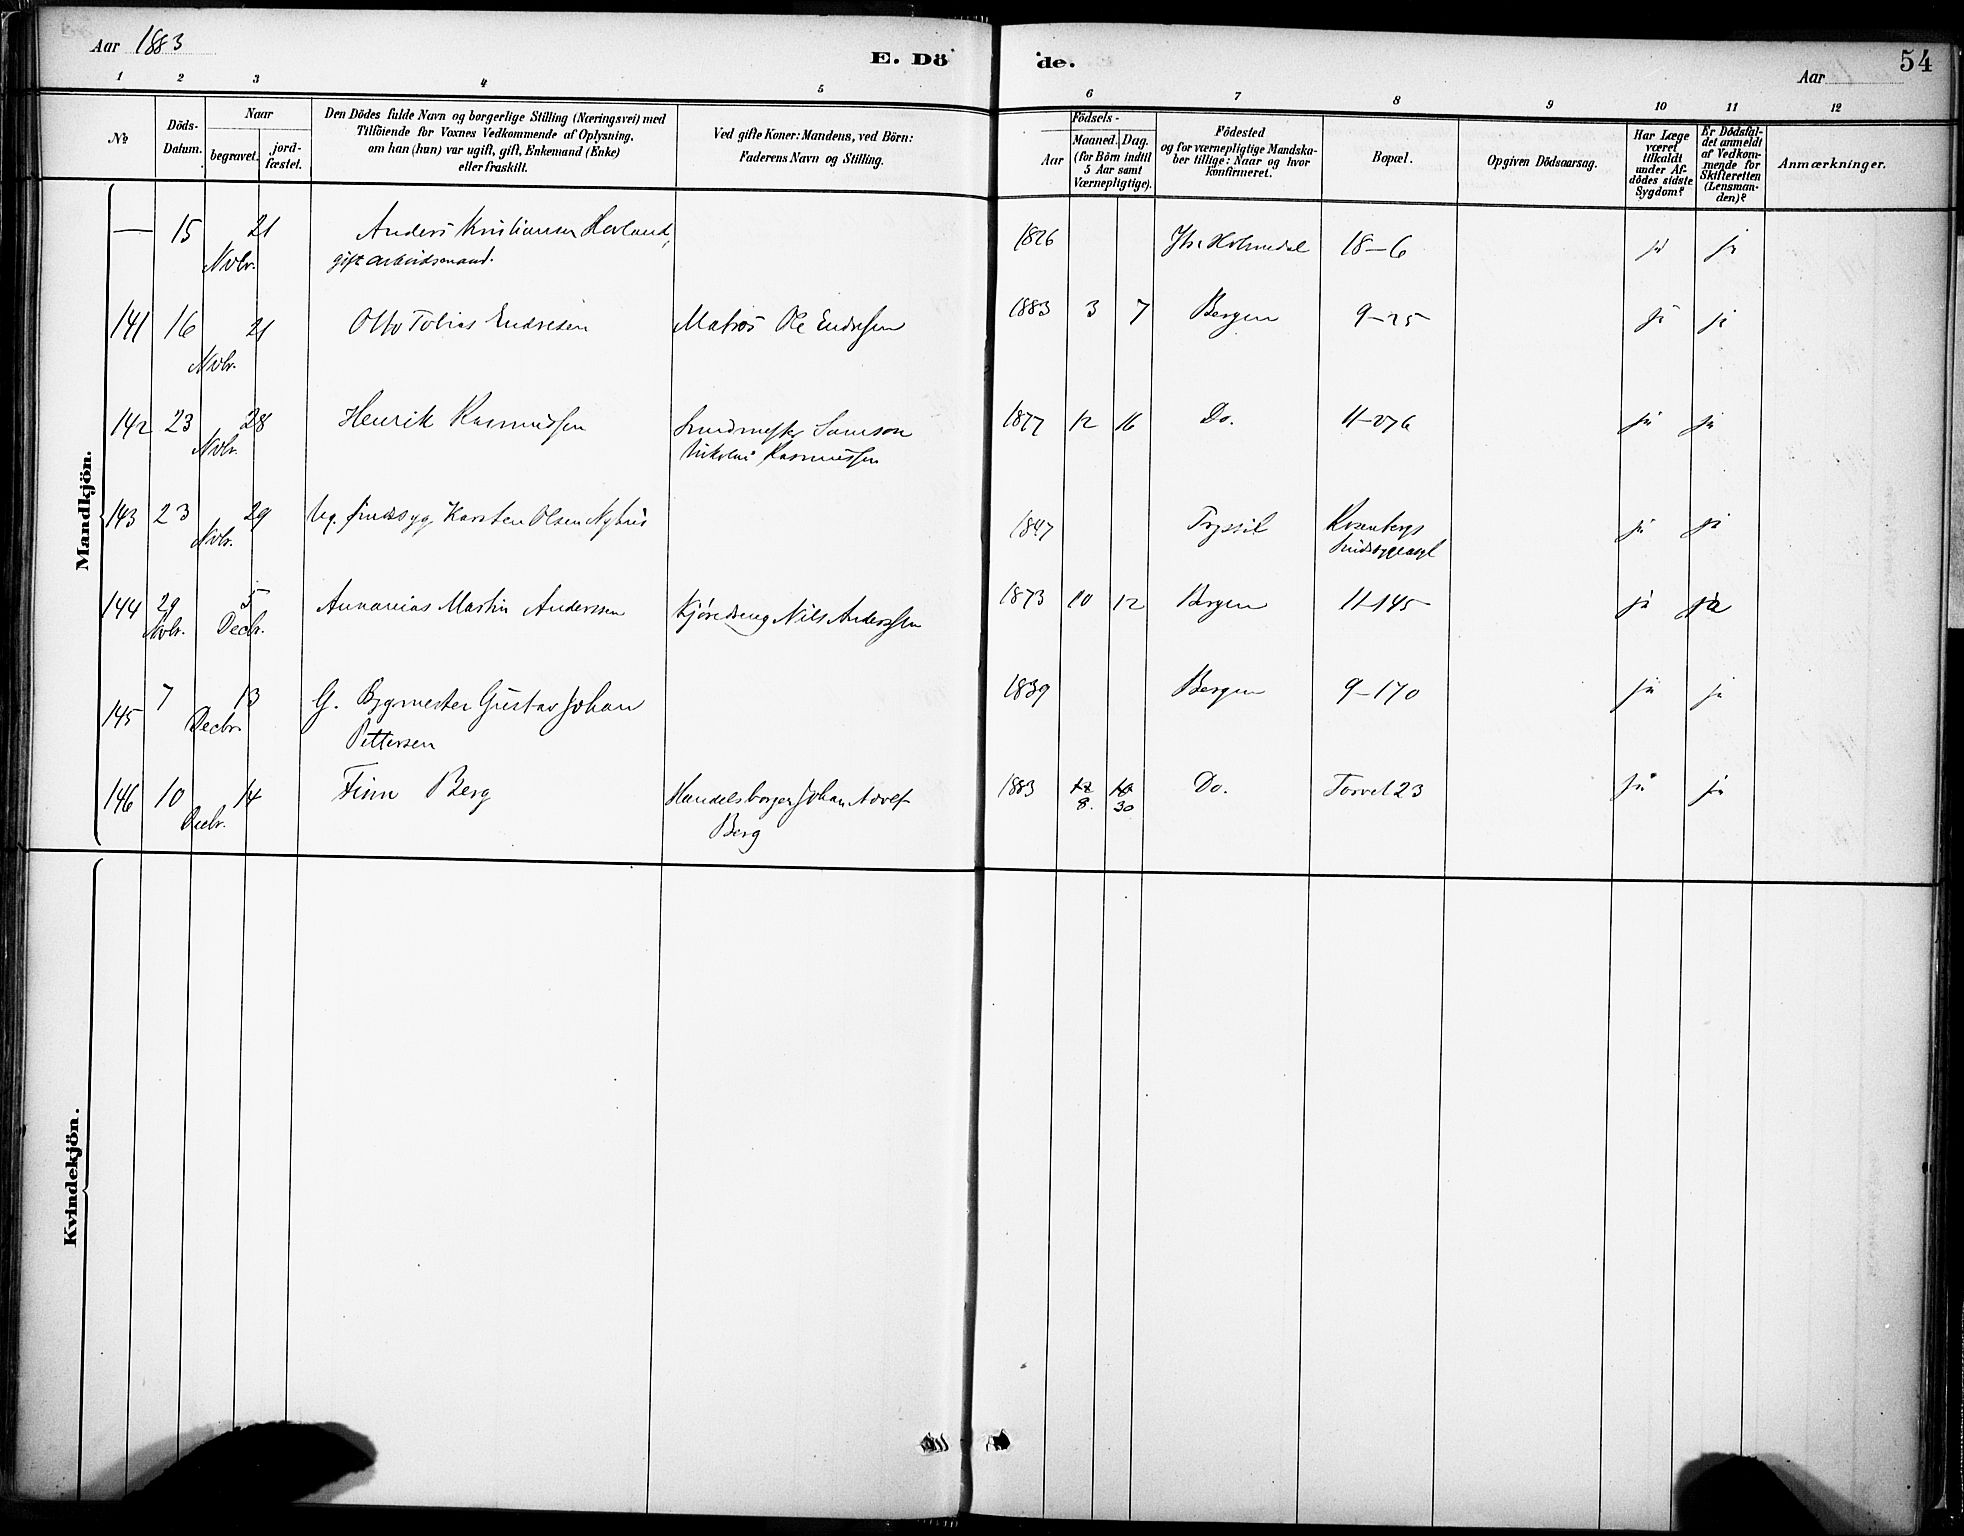 Aar 1883
E. Dö
de.
Aar
54
1 2 3 4 5 6 7 8 9 10 11 12
No
Döds-
Datum.
Naar
begravet.
jord-
fæstet.
Den Dödes fulde Navn og borgerlige Stilling (Næringsvei) med
Tilföiende for Voxnes Vedkommende af Oplysning,
om han (hun) var ugift, gift, Enkemand (Enke)
eller fraskilt.
Ved gifte Koner: Mandens, ved Börn:
Faderens Navn og Stilling.
Födsels-
Aar
Maaned. Dag.
(for Börn indtil
5 Aar samt
Værnepligtige).
Födested
og for værnepligtige Mandska-
ber tillige: Naar og hvor
konfirmeret.
Bopæl.
Opgiven Dödsaarsag.
Har Læge
været
tilkaldt
under Af-
dödes sidste
Sygdom?
Er Dödsfal-
det anmeldt
af Vedkom-
mende for
Skifteretten
(Lensman-
den)?
Anmærkninger.
Mandkjön.
— 15 21 Anders Kristiansen Hovland, 1826 Holmedal 18-6 ja ja
Novbr. gift arbeidsmand.
141 16 21 Otto Tobias Endresen Matros Ole Endresen 1883 3 7 Bergen 9-25 ja ja
Novbr.
142 23 28 Henrik Rasmussen Smedmester Samson 1877 12 16 Do. 11-276 ja ja
Novbr. Nikolai Rasmussen
143 23 29 Ug. sindssyg Karsten Olsen Nyhus 1847 Trysil Rosenbergs ja ja
Novbr. Sindssygeasyl
144 29 5 Annanias Martin Anderssen Nils Anderssen 1873 10 12 Bergen 11-145 ja ja
Novbr. Decbr.
145 7 13 G. Bygmester Gustav Johan 1839 Bergen 9-170 ja ja
Decbr. Pettersen
146 10 14 Finn Berg Handelsborger Johan Adolf 1883 12 18 Do. Torvet 23 ja ja
Decbr. Berg 8. 30
Kvindekjön.